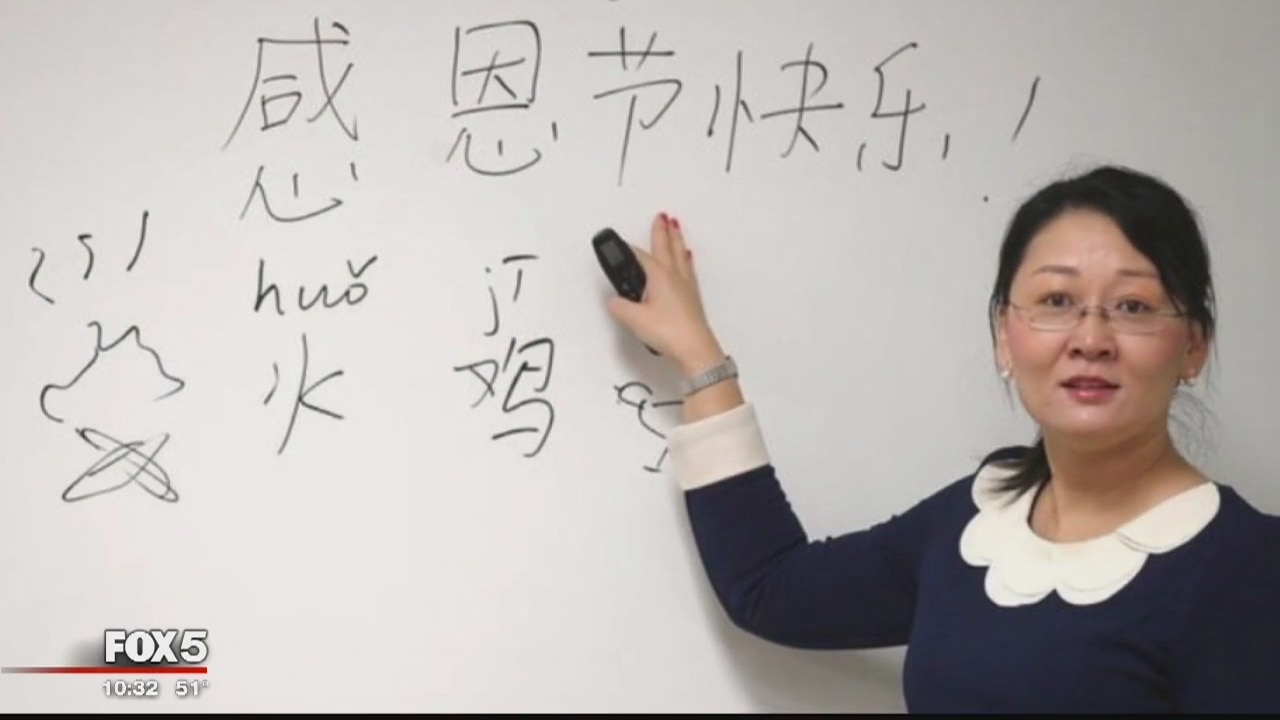 感恩节快乐!
huǒ jī
火 鸡
FOX 5
10:32 51°